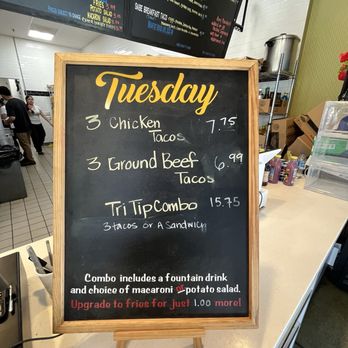 FRIES
POTATO SALAD
MACARONI SALAD
Tuesday
3 Chicken Tacos 7.75
3 Ground Beef Tacos 6.99
Tri Tip Combo 15.75
3 tacos or A Sandwich
Combo includes a fountain drink
and choice of macaroni or potato salad.
Upgrade to fries for just 1.00 more!